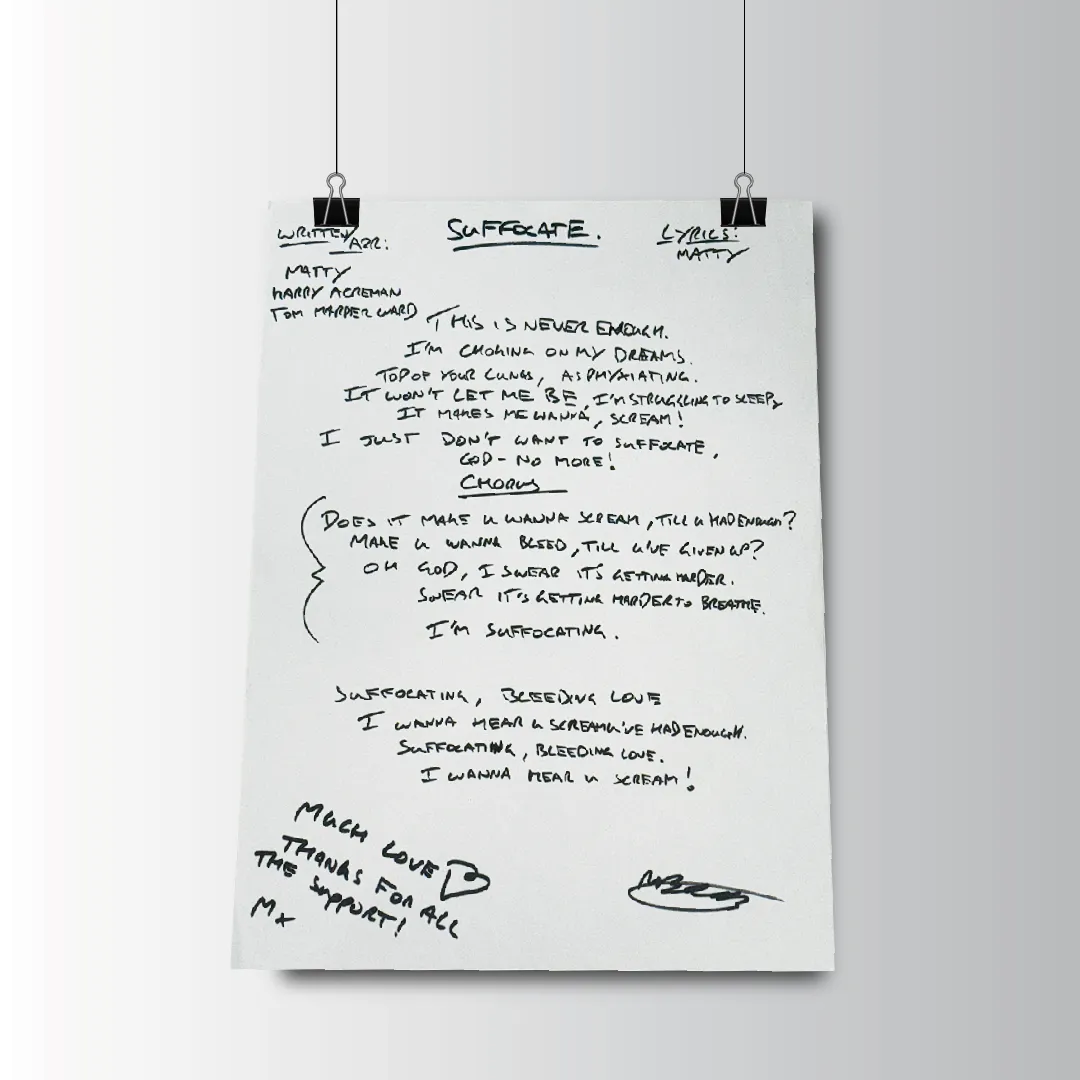 WRITTEN/ARR:
SUFFOCATE.
LYRICS:
MATTY
MATTY
HARRY ACREMAN
TOM MARPER WARD
THIS IS NEVER ENOUGH.
I'M CHOKING ON MY DREAMS.
TOP OF YOUR LUNGS, ASPHYXIATING.
IT WON'T LET ME BE, I'M STRUGGLING TO SLEEP,
IT MAKES ME WANNA, SCREAM!
I JUST DON'T WANT TO SUFFOCATE,
GOD - NO MORE!
CHORUS
DOES IT MAKE U WANNA SCREAM, TILL U HAD ENOUGH?
MAKE U WANNA BLEED, TILL U'VE GIVEN UP?
OH GOD, I SWEAR IT'S GETTING HARDER.
SWEAR IT'S GETTING HARDER TO BREATHE.
I'M SUFFOCATING.
SUFFOCATING, BLEEDING LOVE
I WANNA HEAR U SCREAM U'VE HAD ENOUGH.
SUFFOCATING, BLEEDING LOVE.
I WANNA HEAR U SCREAM!
MUCH LOVE
THANKS FOR ALL
THE SUPPORT!
M x